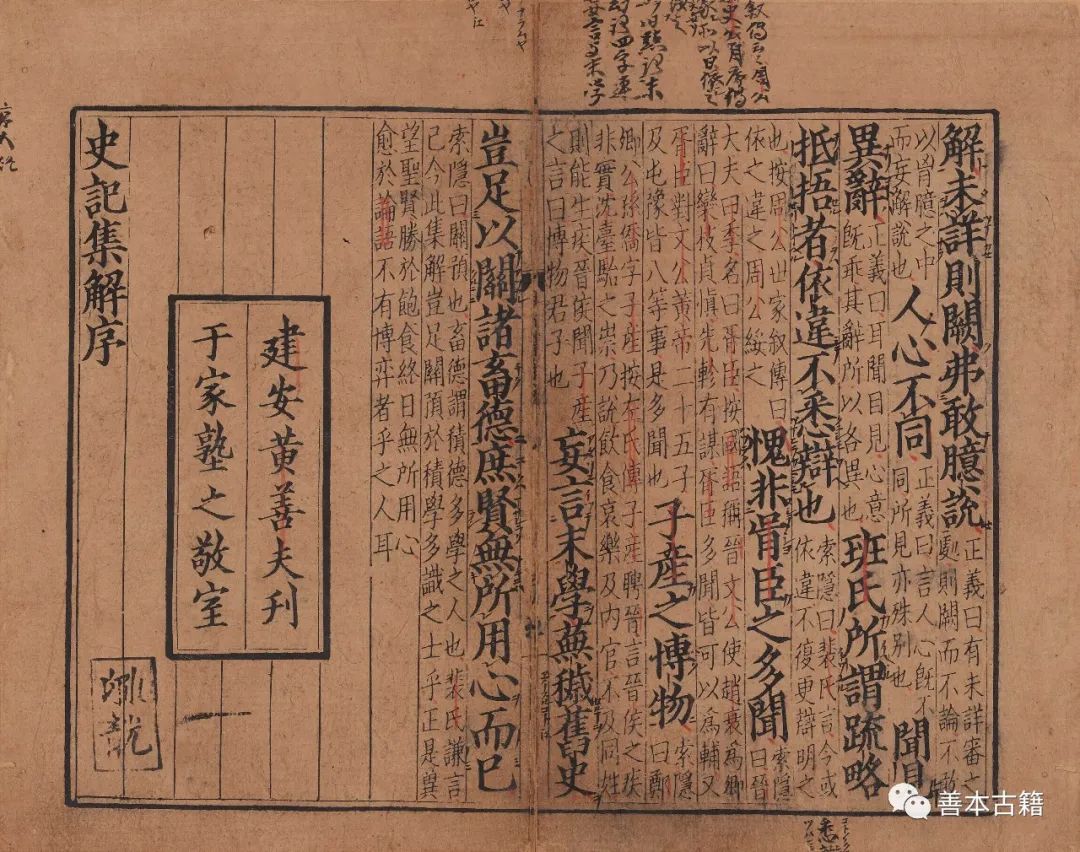 解未詳則闕弗敢臆說正義曰有未詳審之
處則闕而不論不敢
以胷臆之中
而妄解說也
人心不同正義曰言人心既不
同所見亦殊別也
聞見
異辭正義曰耳聞目見心意
既乖其辭所以各異也
班氏所謂疏略
抵捂者依違不悉辯也索隱曰裴氏言今或
依違不復更辯明之
也按周公世家敘傳曰
依之違之周公綏之
愧非胥臣之多聞索隱
曰晉
大夫曰季名曰胥臣按國語稱晉文公使趙衰為卿
辭曰欒枝貞慎先軫有謀胥臣多聞皆可以為輔又
胥臣對文公黃帝二十五子
及屯豫皆八等事是多聞也
子產之博物索隱
曰鄭
卿公孫僑字子產按左氏傳子產聘晉言晉侯之疾
非實沈臺駘之祟乃說飲食哀樂及内官不及同姓
則能生疾晉侯聞子產
之言曰博物君子也
妄言末學蕪穢舊史
豈足以關諸畜德庶賢無所用心而已
索隱曰關預也畜德謂積德多學之人也裴氏謙言
已今此集解豈足關預於積學多識之士乎正是冀
望聖賢勝於飽食終日無所用心
愈於論語不有博弈者乎之人耳
建安黃善夫刊
于家塾之敬室
史記集解序
善本古籍